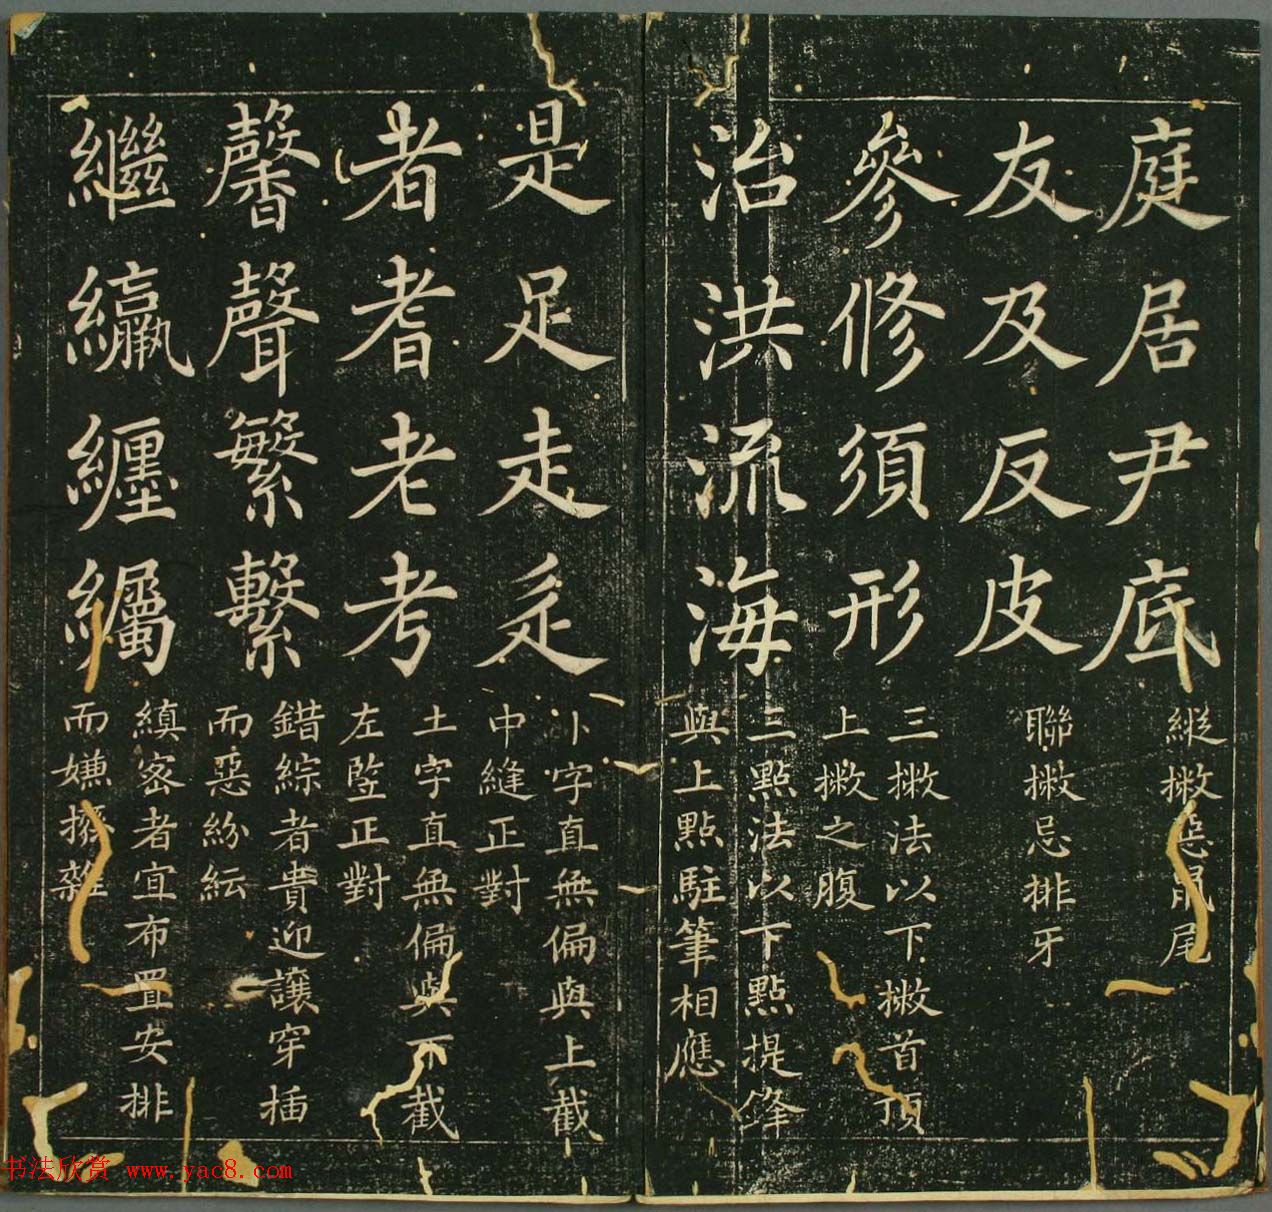 庭居尹底
縱撇惡鼠尾
友及反皮
聯撇忌排牙
參修須形
三撇法以下撇首頂
上撇之腹
治洪流海
三點法以下點提鋒
與上點駐筆相應
是足走辵
卜字直無偏與上截
中縫正對
者耆老考
土字直無偏與下截
左竪正對
馨聲繁繫
錯綜者貴迎讓穿插
而惡紛紜
繼纛纏纊
縝密者宜布置安排
而嫌撥雜
书法欣赏 www.yac8.com